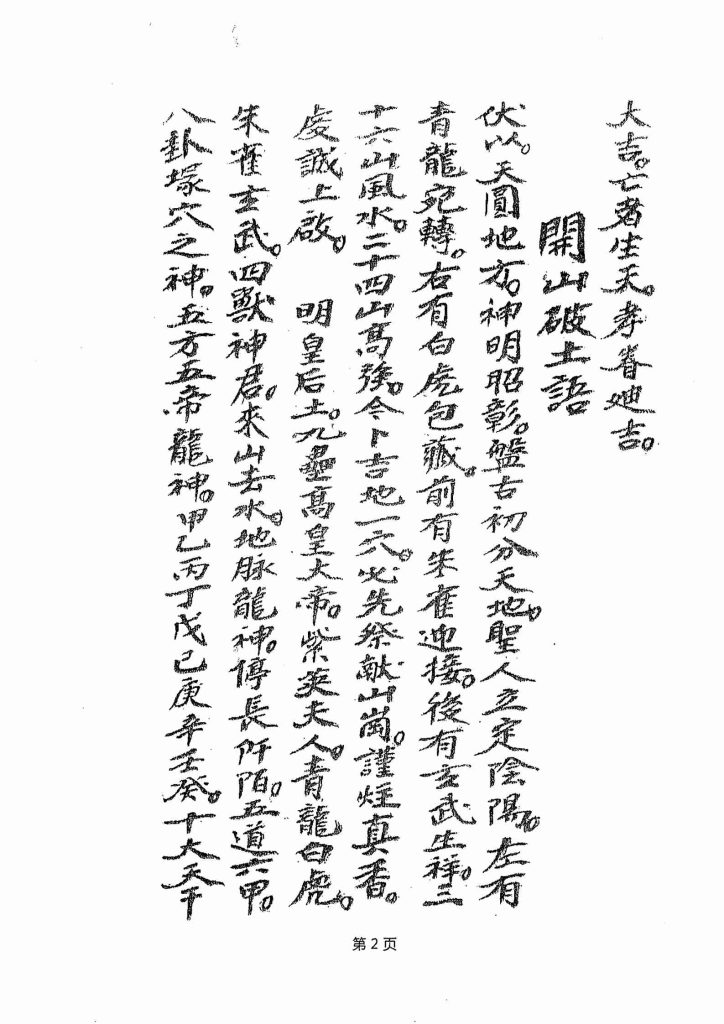 大吉。亡者生天。孝眷迪吉。
開山破土語
伏以。天圓地方。神明昭彰。盤古初分天地。聖人立定陰陽。左有
青龍宛轉。右有白虎包藏。前有朱雀迎接。後有玄武生祥。三
十六山風水。二十四山高強。今卜吉地一穴。必先祭献山崗。謹炷真香。
虔誠上啟。 明皇后土。九壘高皇大帝。紫英夫人。青龍白虎。
朱雀玄武。四獸神君。來山去水。地脉龍神。停長阡陌。五道六甲。
八卦塚穴之神。五方五帝龍神。甲乙丙丁戊己庚辛壬癸。十大天干
第2页